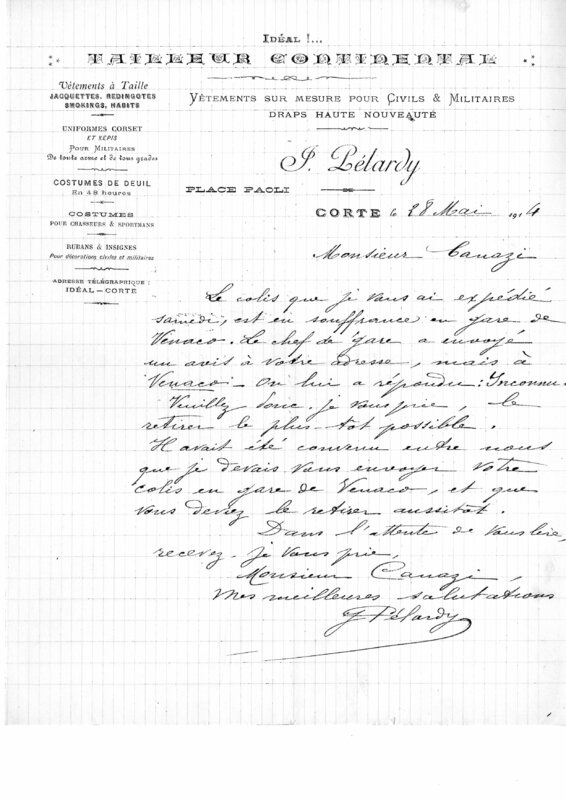 IDÉAL !...
TAILLEUR CONTINENTAL
Vêtements à Taille
JACQUETTES, REDINGOTES
SMOKINGS, HABITS
UNIFORMES CORSET
ET KEPIS
POUR MILITAIRES
De toute arme et de tous grades
COSTUMES DE DEUIL
En 48 heures
COSTUMES
POUR CHASSEURS & SPORTMANS
RUBANS & INSIGNES
Pour décorations civiles et militaires
ADRESSE TÉLÉGRAPHIQUE :
IDÉAL – CORTE
VÊTEMENTS SUR MESURE POUR CIVILS & MILITAIRES
DRAPS HAUTE NOUVEAUTÉ
J. Pélardy
PLACE PAOLI
CORTE le 28 Mai 1914
Monsieur Canazi
Le colis que je vous ai expédié
samedi, est en souffrance en gare de
Venaco. Le chef de gare a envoyé
un avis à votre adresse, mais à
Venaco - On lui a répondu : Inconnu.
Veuillez donc, je vous prie, le
retirer le plus-tot possible.
Il avait été convenu entre nous
que je devais vous envoyer votre
colis en gare de Venaco, et que
vous deviez le retirer aussitot.
Dans l'attente de vous lire,
recevez, je vous prie,
Monsieur Canazi,
mes meilleures salutations
J Pélardy